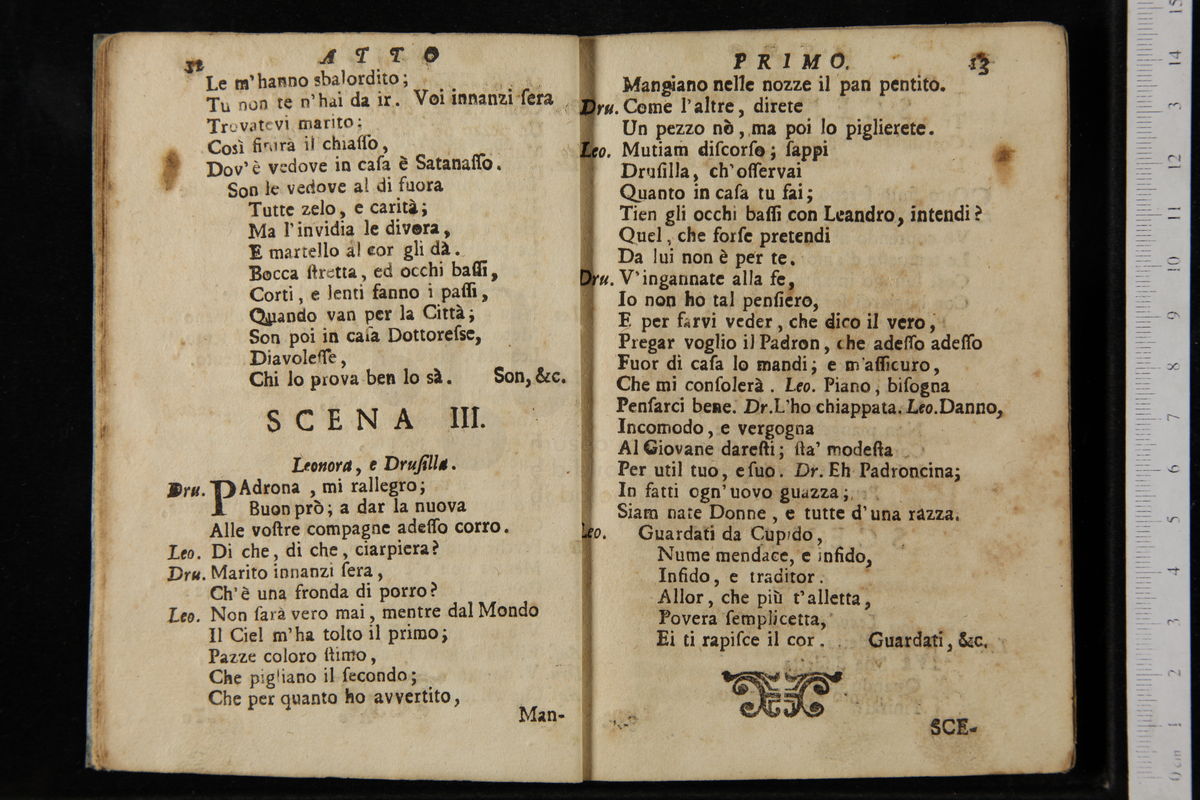 12 ATTO
Le m'hanno sbalordito;
Tu non te n'hai da ir. Voi innanzi ſera
Trovatevi marito;
Così finirà il chiaſſo,
Dov'è vedove in caſa è Satanaſſo.
Son le vedove al di fuora
Tutte zelo, e carità;
Ma l'invidia le divora,
E martello al cor gli dà.
Bocca ſtretta, ed occhi baſſi,
Corti, e lenti fanno i paſſi,
Quando van per la Città;
Son poi in caſa Dottoreſse,
Diavoleſſe,
Chi lo prova ben lo sà. Son, &c.
SCENA III.
Leonora, e Druſilla.
Dru. PAdrona, mi rallegro;
Buon prò; a dar la nuova
Alle voſtre compagne adeſſo corro.
Leo. Di che, di che, ciarpiera?
Dru. Marito innanzi ſera,
Ch'è una fronda di porro?
Leo. Non ſarà vero mai, mentre dal Mondo
Il Ciel m'ha tolto il primo;
Pazze coloro ſtimo,
Che pigliano il ſecondo;
Che per quanto ho avvertito,
Man-
PRIMO. 13
Mangiano nelle nozze il pan pentito.
Dru. Come l'altre, direte
Un pezzo nò, ma poi lo piglierete.
Leo. Mutiam diſcorſo; ſappi
Druſilla, ch'oſſervai
Quanto in caſa tu fai;
Tien gli occhi baſſi con Leandro, intendi?
Quel, che forſe pretendi
Da lui non è per te.
Dru. V'ingannate alla fe,
Io non ho tal penſiero,
E per farvi veder, che dico il vero,
Pregar voglio il Padron, che adeſſo adeſſo
Fuor di caſa lo mandi; e m'aſſicuro,
Che mi conſolerà. Leo. Piano, biſogna
Penſarci bene. Dr. L'ho chiappata. Leo. Danno,
Incomodo, e vergogna
Al Giovane dareſti; ſta' modeſta
Per util tuo, e ſuo. Dr. Eh Padroncina;
In fatti ogn'uovo guazza;
Siam nate Donne, e tutte d'una razza.
Leo. Guardati da Cupido,
Nume mendace, e infido,
Infido, e traditor.
Allor, che più t'alletta,
Povera ſemplicetta,
Ei ti rapiſce il cor. Guardati, &c.
SCE-
15
14
13
12
11
10
9
8
7
6
5
4
3
2
1
0 cm